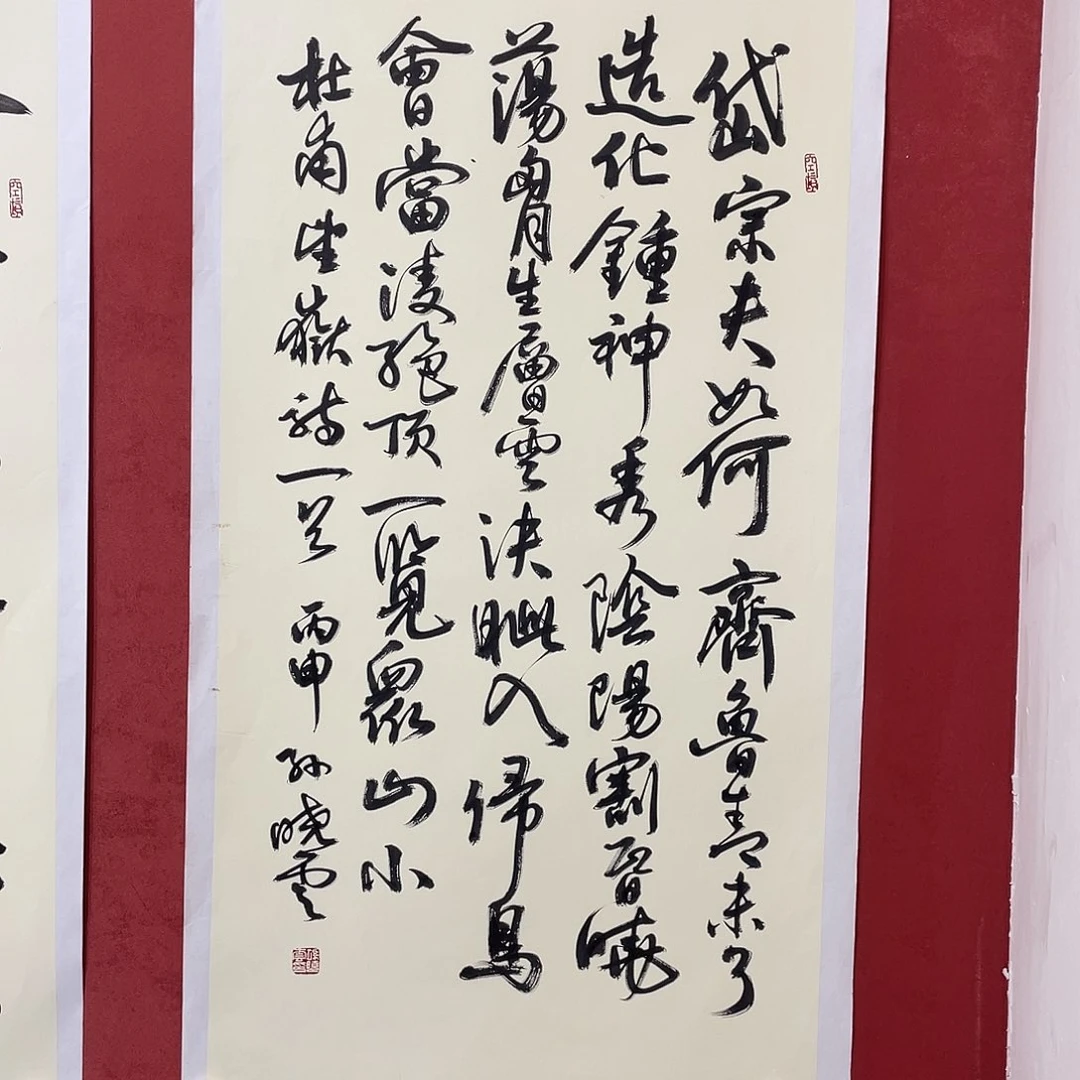 岱宗夫如何齊魯青未了
造化鍾神秀陰陽割昏曉
蕩胷生層雲決眦入歸鳥
會當淩絕頂一覽眾山小
杜甫望嶽詩一首 丙申 孙曉雲